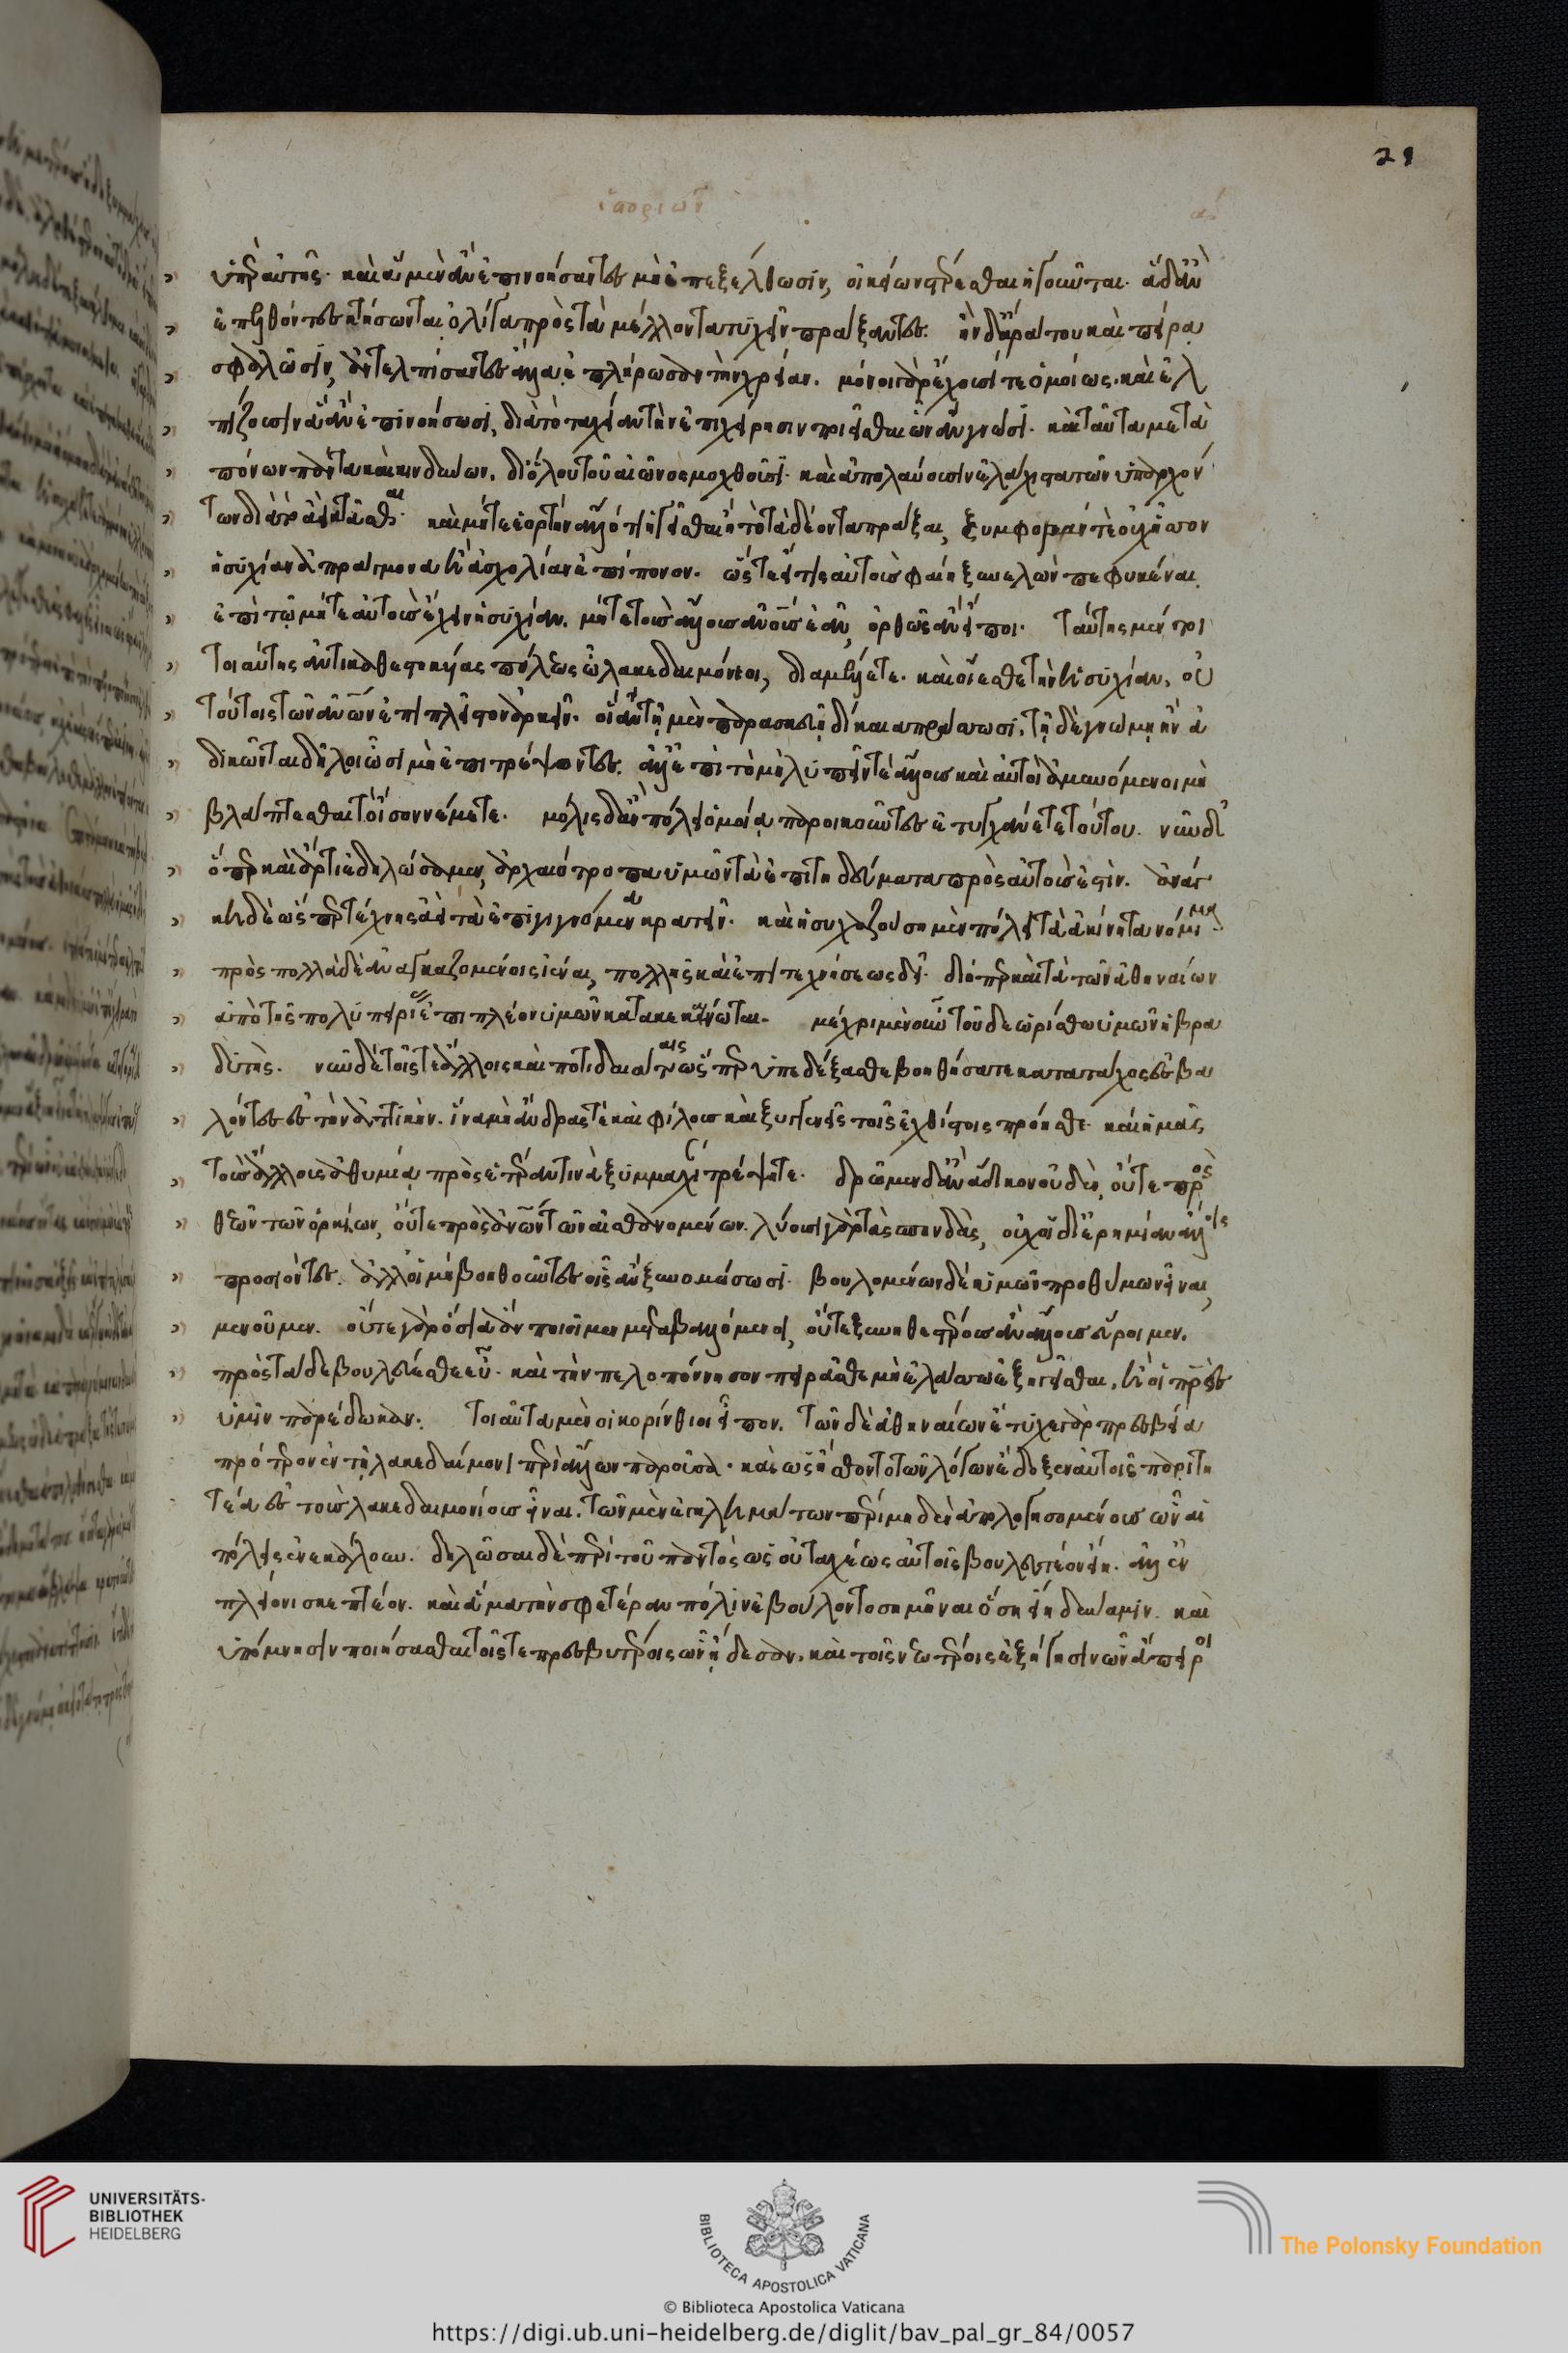 ὑπὲρ αὐτῆς· καὶ ἃ μὲν ἂν ἐπινοήσαντες μὴ ἐπεξέλθωσιν, οἰκείων στέρεσθαι ἡγοῦνται· ἃ δ' ἂν
ἐπελθόντες κτήσωνται ὀλίγα πρὸς τὰ μέλλοντα τυχεῖν πράξαντες. ἢν δ' ἄρα του καὶ πείρᾳ
σφαλῶσιν, ἀντελπίσαντες ἄλλα ἐπλήρωσαν τὴν χρείαν. μόνοι γὰρ ἔχουσί τε ὁμοίως, καὶ ἐλ
πίζουσιν ἃ ἂν ἐπινοήσωσι, διὰ τὸ ταχεῖαν τὴν ἐπιχείρησιν ποιεῖσθαι ὧν ἂν γνῶσι. καὶ ταῦτα μετὰ
πόνων πάντα καὶ κινδύνων, δι' ὅλου τοῦ αἰῶνος μοχθοῦσι· καὶ ἀπολαύουσιν ἐλάχιστα τῶν ὑπαρχόν
των διὰ τὸ ἀεὶ κτᾶσθαι· καὶ μήτε ἑορτὴν ἄλλό τι ἡγεῖσθαι ἢ τὸ τὰ δέοντα πρᾶξαι, ξυμφοράν τε οὐχ ἧσσον
ἡσυχίαν ἀπράγμονα ἢ ἀσχολίαν ἐπίπονον. ὥστε εἴ τις αὐτοὺς φαίη ξυνελὼν πεφυκέναι
ἐπὶ τῷ μήτε αὐτοὺς ἔχειν ἡσυχίαν, μήτε τοὺς ἄλλους ἀνους ἐᾶν, ὀρθῶς ἂν εἴποι. ταύτης μέντοι
τοιαύτης ἀντικαθεστηκυίας πόλεως ὦ λακεδαιμόνιοι, διαμέλλετε· καὶ οἴεσθε τὴν ἡσυχίαν, οὐ
τούτοις τῶν ἀνων ἐπιπλεῖστον ἀρκεῖν· οἳ ἂν τῇ μὲν παρασκευῇ δίκαια πράσσωσι, τῇ δὲ γνώμῃ ἢν ἀ
δικῶνται δῆλοι ὦσι μὴ ἐπιτρέψοντες. ἀλλ' ἐπὶ τὸ μὴ λυπεῖν τε ἄλλους καὶ αὐτοὶ ἀμυνόμενοι μὴ
βλάπτεσθαι τὸ ἴσον νέμετε. μόλις δ' ἂν πόλει ὁμοίᾳ παροικοῦντες ἐτυγχάνετε τούτου. νῦν δ'
ὅπερ καὶ ἄρτι ἐδηλώσαμεν, ἀρχαιότροπα ὑμῶν τὰ ἐπιτηδεύματα πρὸς αὐτούς ἐστιν. ἀνάγ
κη δὲ ὥσπερ τέχνης ἀεὶ τὰ ἐπιγιγνόμενα κρατεῖν· καὶ ἡσυχαζούσῃ μὲν πόλει τὰ ἀκίνητα νόμιμα
πρὸς πολλὰ δὲ ἀναγκαζομένοις ἰέναι, πολλῆς καὶ ἐπιτεχνήσεως δεῖ· διόπερ καὶ τὰ τῶν ἀθηναίων
ἀπὸ τῆς πολυπειρίας ἐπὶ πλέον ὑμῶν κατακεκαίνωται. μέχρι μὲν οὖν τοῦδε ὡρίσθω ὑμῶν ἡ βρα
δυτής. νῦν δὲ τοῖς τε ἄλλοις καὶ ποτιδαιάταις ὥσπερ ὑπεδέξασθε βοηθήσατε κατατάχος ἐσβα
λόντες ἐς τὴν ἀττικήν. ἵνα μὴ ἄνδρας τὲ καὶ φίλους καὶ ξυγγενεῖς τοῖς ἐχθίστοις προῆσθε· καὶ ἡμᾶς
τοὺς ἄλλους ἀθυμίᾳ πρὸς ἑτέραν τινὰ ξυμμαχίαν τρέψητε. δρῷμεν δ' ἂν ἄδικον οὐδὲν, οὔτε πρὸς
θεῶν τῶν ὁρκίων, οὔτε πρὸς ἀνων τῶν αἰσθανομένων. λύουσι γὰρ τὰς σπονδὰς, οὐχ οἱ δι' ἐρημίαν ἄλλοις
προσιόντες. ἀλλ' οἱ μὴ βοηθοῦντες οἷς ἂν ξυνομόσωσι. βουλομένων δὲ ὑμῶν προθύμων εἶναι,
μενοῦμεν. οὔτε γὰρ ὅσια ἂν ποιοῖμεν μεταβαλλόμενοι, οὔτε ξυνηθεστέρους ἂν ἄλλους εὕροιμεν.
πρὸς τάδε βουλεύεσθε εὖ. καὶ τὴν πελοπόννησον πειρᾶσθε μὴ ἐλάσσω ἐξηγεῖσθαι, ἢ οἱ πρες
ὑμῖν παρέδωκαν. τοιαῦτα μὲν οἱ κορίνθιοι εἶπον. τῶν δὲ ἀθηναίων ἔτυχε γὰρ πρεσβεία
πρότερον ἐν τῇ λακεδαίμονι περὶ ἄλλων παροῦσα. καὶ ὡς ᾔσθοντο τῶν λόγων ἔδοξεν αὐτοῖς παριτη
τέα ἐς τοὺς λακεδαιμονίους εἶναι. τῶν μὲν ἐγκλημάτων πέρι μηδὲν ἀπολογησομένους ὧν αἱ
πόλεις ἐνεκάλουν. δηλῶσαι δὲ περὶ τοῦ παντὸς ὡς οὐ ταχέως αὐτοῖς βουλευτέον εἴη. ἀλλ' ἐν
πλείονι σκεπτέον. καὶ ἅμα τὴν σφετέραν πόλιν ἐβούλοντο σημῆναι ὅση εἴη δύναμιν. καὶ
ὑπόμνησιν ποιήσασθαι τοῖς τε πρεσβυτέροις ὧν ᾔδεσαν, καὶ τοῖς νεωτέροις ἐξήγησιν ὧν ἄπειροι
UNIVERSITÄTS-
BIBLIOTHEK
HEIDELBERG
BIBLIOTECA APOSTOLICA VATICANA
© Biblioteca Apostolica Vaticana
The Polonsky Foundation
https://digi.ub.uni-heidelberg.de/diglit/bav_pal_gr_84/0057